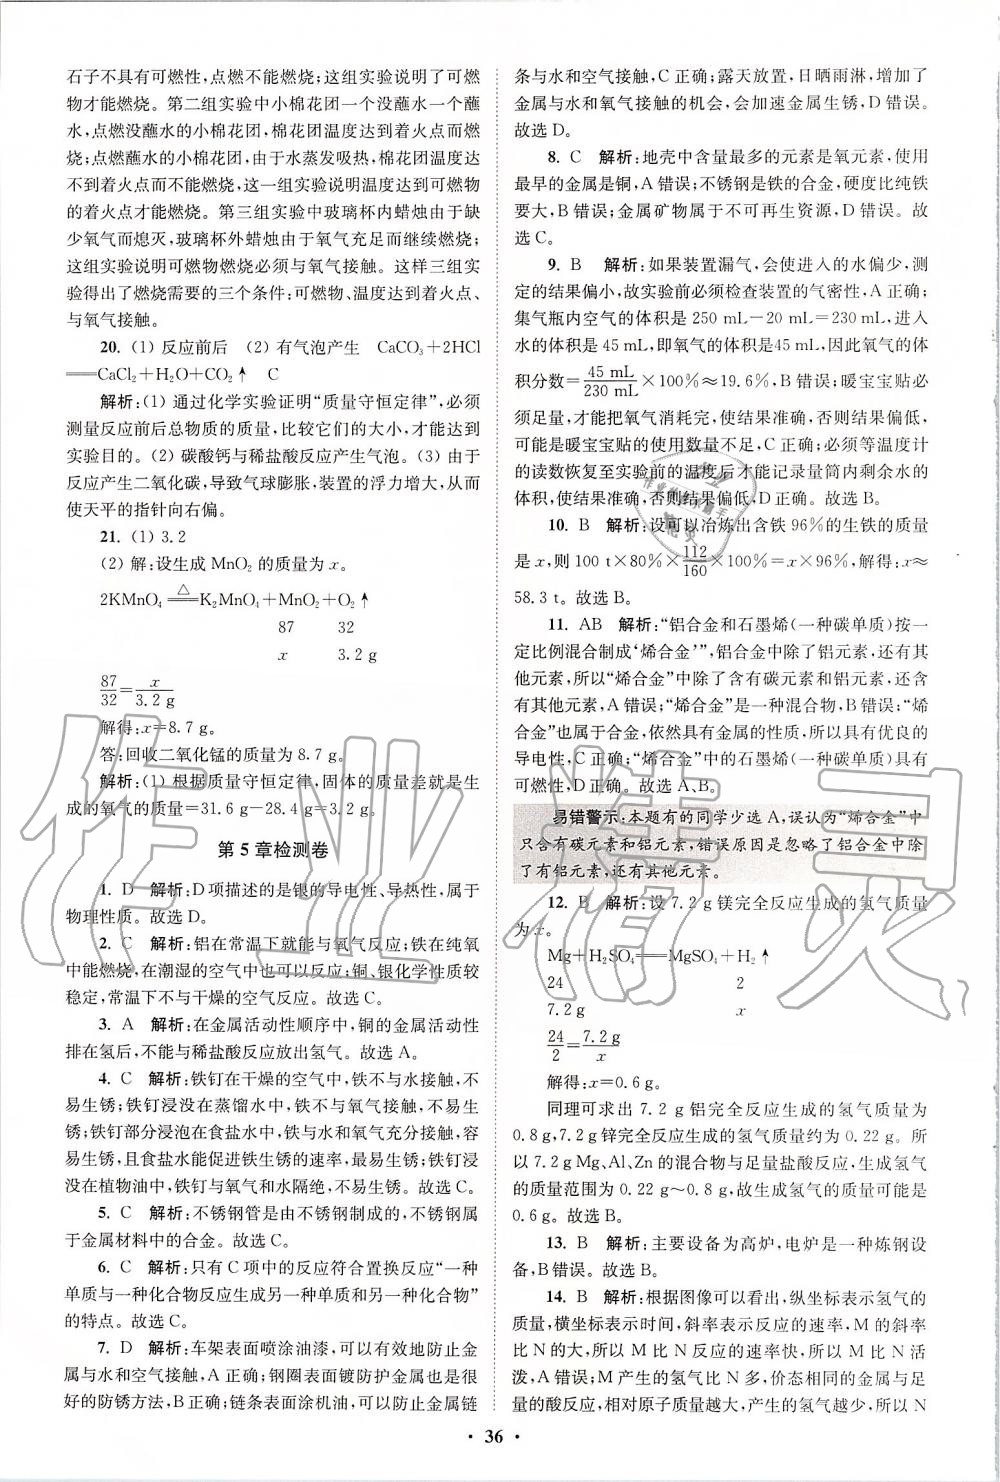 石子不具有可燃性,点燃不能燃烧;这组实验说明了可燃
物才能燃烧。第二组实验中小棉花团一个没蘸水一个蘸
水,点燃没蘸水的小棉花团,棉花团温度达到着火点而燃
烧;点燃蘸水的小棉花团,由于水蒸发吸热,棉花团温度达
不到着火点而不能燃烧,这一组实验说明温度达到可燃物
的着火点才能燃烧。第三组实验中玻璃杯内蜡烛由于缺
少氧气而熄灭,玻璃杯外蜡烛由于氧气充足而继续燃烧;
这组实验说明可燃物燃烧必须与氧气接触。这样三组实
验得出了燃烧需要的三个条件:可燃物、温度达到着火点、
与氧气接触。
20. (1) 反应前后 (2) 有气泡产生 CaCO₃+2HCl
══CaCl₂+H₂O+CO₂↑ C
解析:(1) 通过化学实验证明“质量守恒定律”,必须
测量反应前后总物质的质量,比较它们的大小,才能达到
实验目的。(2) 碳酸钙与稀盐酸反应产生气泡。(3) 由于
反应产生二氧化碳,导致气球膨胀,装置的浮力增大,从而
使天平的指针向右偏。
21. (1) 3.2
(2) 解:设生成 MnO₂ 的质量为 x。
2KMnO₄ ══△ K₂MnO₄+MnO₂+O₂↑
87 32
x 3.2 g
87/32=x/3.2 g
解得:x=8.7 g。
答:回收二氧化锰的质量为 8.7 g。
解析:(1) 根据质量守恒定律,固体的质量差就是生
成的氧气的质量=31.6 g-28.4 g=3.2 g。
第 5 章检测卷
1. D 解析:D 项描述的是银的导电性、导热性,属于
物理性质。故选 D。
2. C 解析:铝在常温下就能与氧气反应;铁在纯氧
中能燃烧,在潮湿的空气中也可以反应;铜、银化学性质较
稳定,常温下不与干燥的空气反应。故选 C。
3. A 解析:在金属活动性顺序中,铜的金属活动性
排在氢后,不能与稀盐酸反应放出氢气。故选 A。
4. C 解析:铁钉在干燥的空气中,铁不与水接触,不
易生锈;铁钉浸没在蒸馏水中,铁不与氧气接触,不易生
锈;铁钉部分浸泡在食盐水中,铁与水和氧气充分接触,容
易生锈,且食盐水能促进铁生锈的速率,最易生锈;铁钉浸
没在植物油中,铁钉与氧气和水隔绝,不易生锈。故选 C。
5. C 解析:不锈钢管是由不锈钢制成的,不锈钢属
于金属材料中的合金。故选 C。
6. C 解析:只有 C 项中的反应符合置换反应“一种
单质与一种化合物反应生成另一种单质和另一种化合物”
的特点。故选 C。
7. D 解析:车架表面喷涂油漆,可以有效地防止金
属与水和空气接触,A 正确;钢圈表面镀防护金属也是很
好的防锈方法,B 正确;链条表面涂机油,可以防止金属链
条与水和空气接触,C 正确;露天放置,日晒雨淋,增加了
金属与水和氧气接触的机会,会加速金属生锈,D 错误。
故选 D。
8. C 解析:地壳中含量最多的元素是氧元素,使用
最早的金属是铜,A 错误;不锈钢是铁的合金,硬度比纯铁
要大,B 错误;金属矿物属于不可再生资源,D 错误。故
选 C。
9. B 解析:如果装置漏气,会使进入的水偏少,测
定的结果偏小,故实验前必须检查装置的气密性,A 正确;
集气瓶内空气的体积是 250 mL-20 mL=230 mL,进入
水的体积是 45 mL,即氧气的体积是45 mL,因此氧气的体
积分数=45 mL/230 mL×100%≈19.6%,B 错误;暖宝宝贴必
须足量,才能把氧气消耗完,使结果准确,否则结果偏低,
可能是暖宝宝贴的使用数量不足,C 正确;必须等温度计
的读数恢复至实验前的温度后才能记录量筒内剩余水的
体积,使结果准确,否则结果偏低,D 正确。故选 B。
10. B 解析:设可以冶炼出含铁 96%的生铁的质量
是 x,则 100 t×80%×112/160×100%=x×96%,解得:x≈
58.3 t。故选 B。
11. AB 解析:“铝合金和石墨烯(一种碳单质)按一
定比例混合制成‘烯合金’”,铝合金中除了铝元素,还有其
他元素,所以“烯合金”中除了含有碳元素和铝元素,还含
有其他元素,A 错误;“烯合金”是一种混合物,B 错误;“烯
合金”也属于合金,依然具有金属的性质,所以具有优良的
导电性,C 正确;“烯合金”中的石墨烯(一种碳单质)具有
可燃性,D 正确。故选 A、B。
易错警示:本题有的同学少选 A,误认为“烯合金”中
只含有碳元素和铝元素,错误原因是忽略了铝合金中除
了有铝元素,还有其他元素。
12. B 解析:设 7.2 g 镁完全反应生成的氢气质量
为 x。
Mg+H₂SO₄══MgSO₄+H₂↑
24 2
7.2 g x
24/2=7.2 g/x
解得:x=0.6 g。
同理可求出 7.2 g 铝完全反应生成的氢气质量为
0.8 g,7.2 g 锌完全反应生成的氢气质量约为 0.22 g。所
以 7.2 g Mg、Al、Zn 的混合物与足量盐酸反应,生成氢气
的质量范围为 0.22 g～0.8 g,故生成氢气的质量可能是
0.6 g。故选 B。
13. B 解析:主要设备为高炉,电炉是一种炼钢设
备,B 错误。故选 B。
14. B 解析:根据图像可以看出,纵坐标表示氢气的
质量,横坐标表示时间,斜率表示反应的速率,M 的斜率
比 N 的大,所以 M 比 N 反应的速率快,所以 M 比 N 活
泼,A 错误;M 产生的氢气比 N 多,价态相同的金属与足
量的酸反应,相对原子质量越大,产生的氢气越少,所以 N
• 36 •
作业精灵